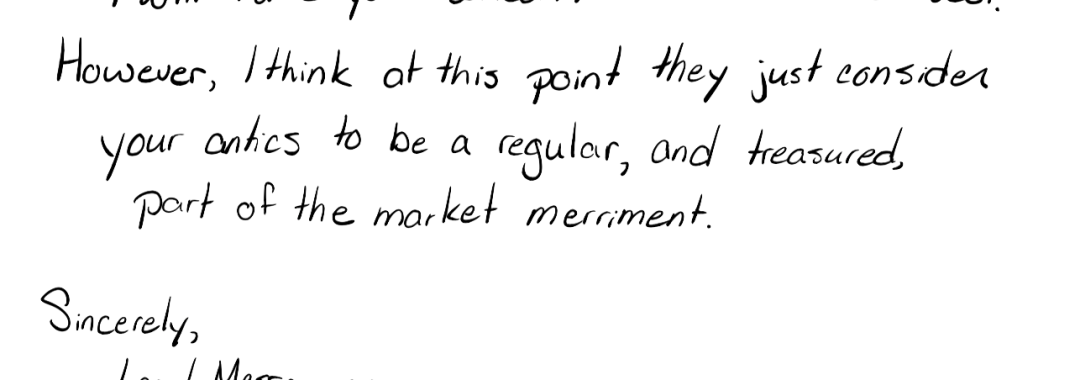 However, I think at this point they just consider
your antics to be a regular, and treasured,
part of the market merriment.
Sincerely,